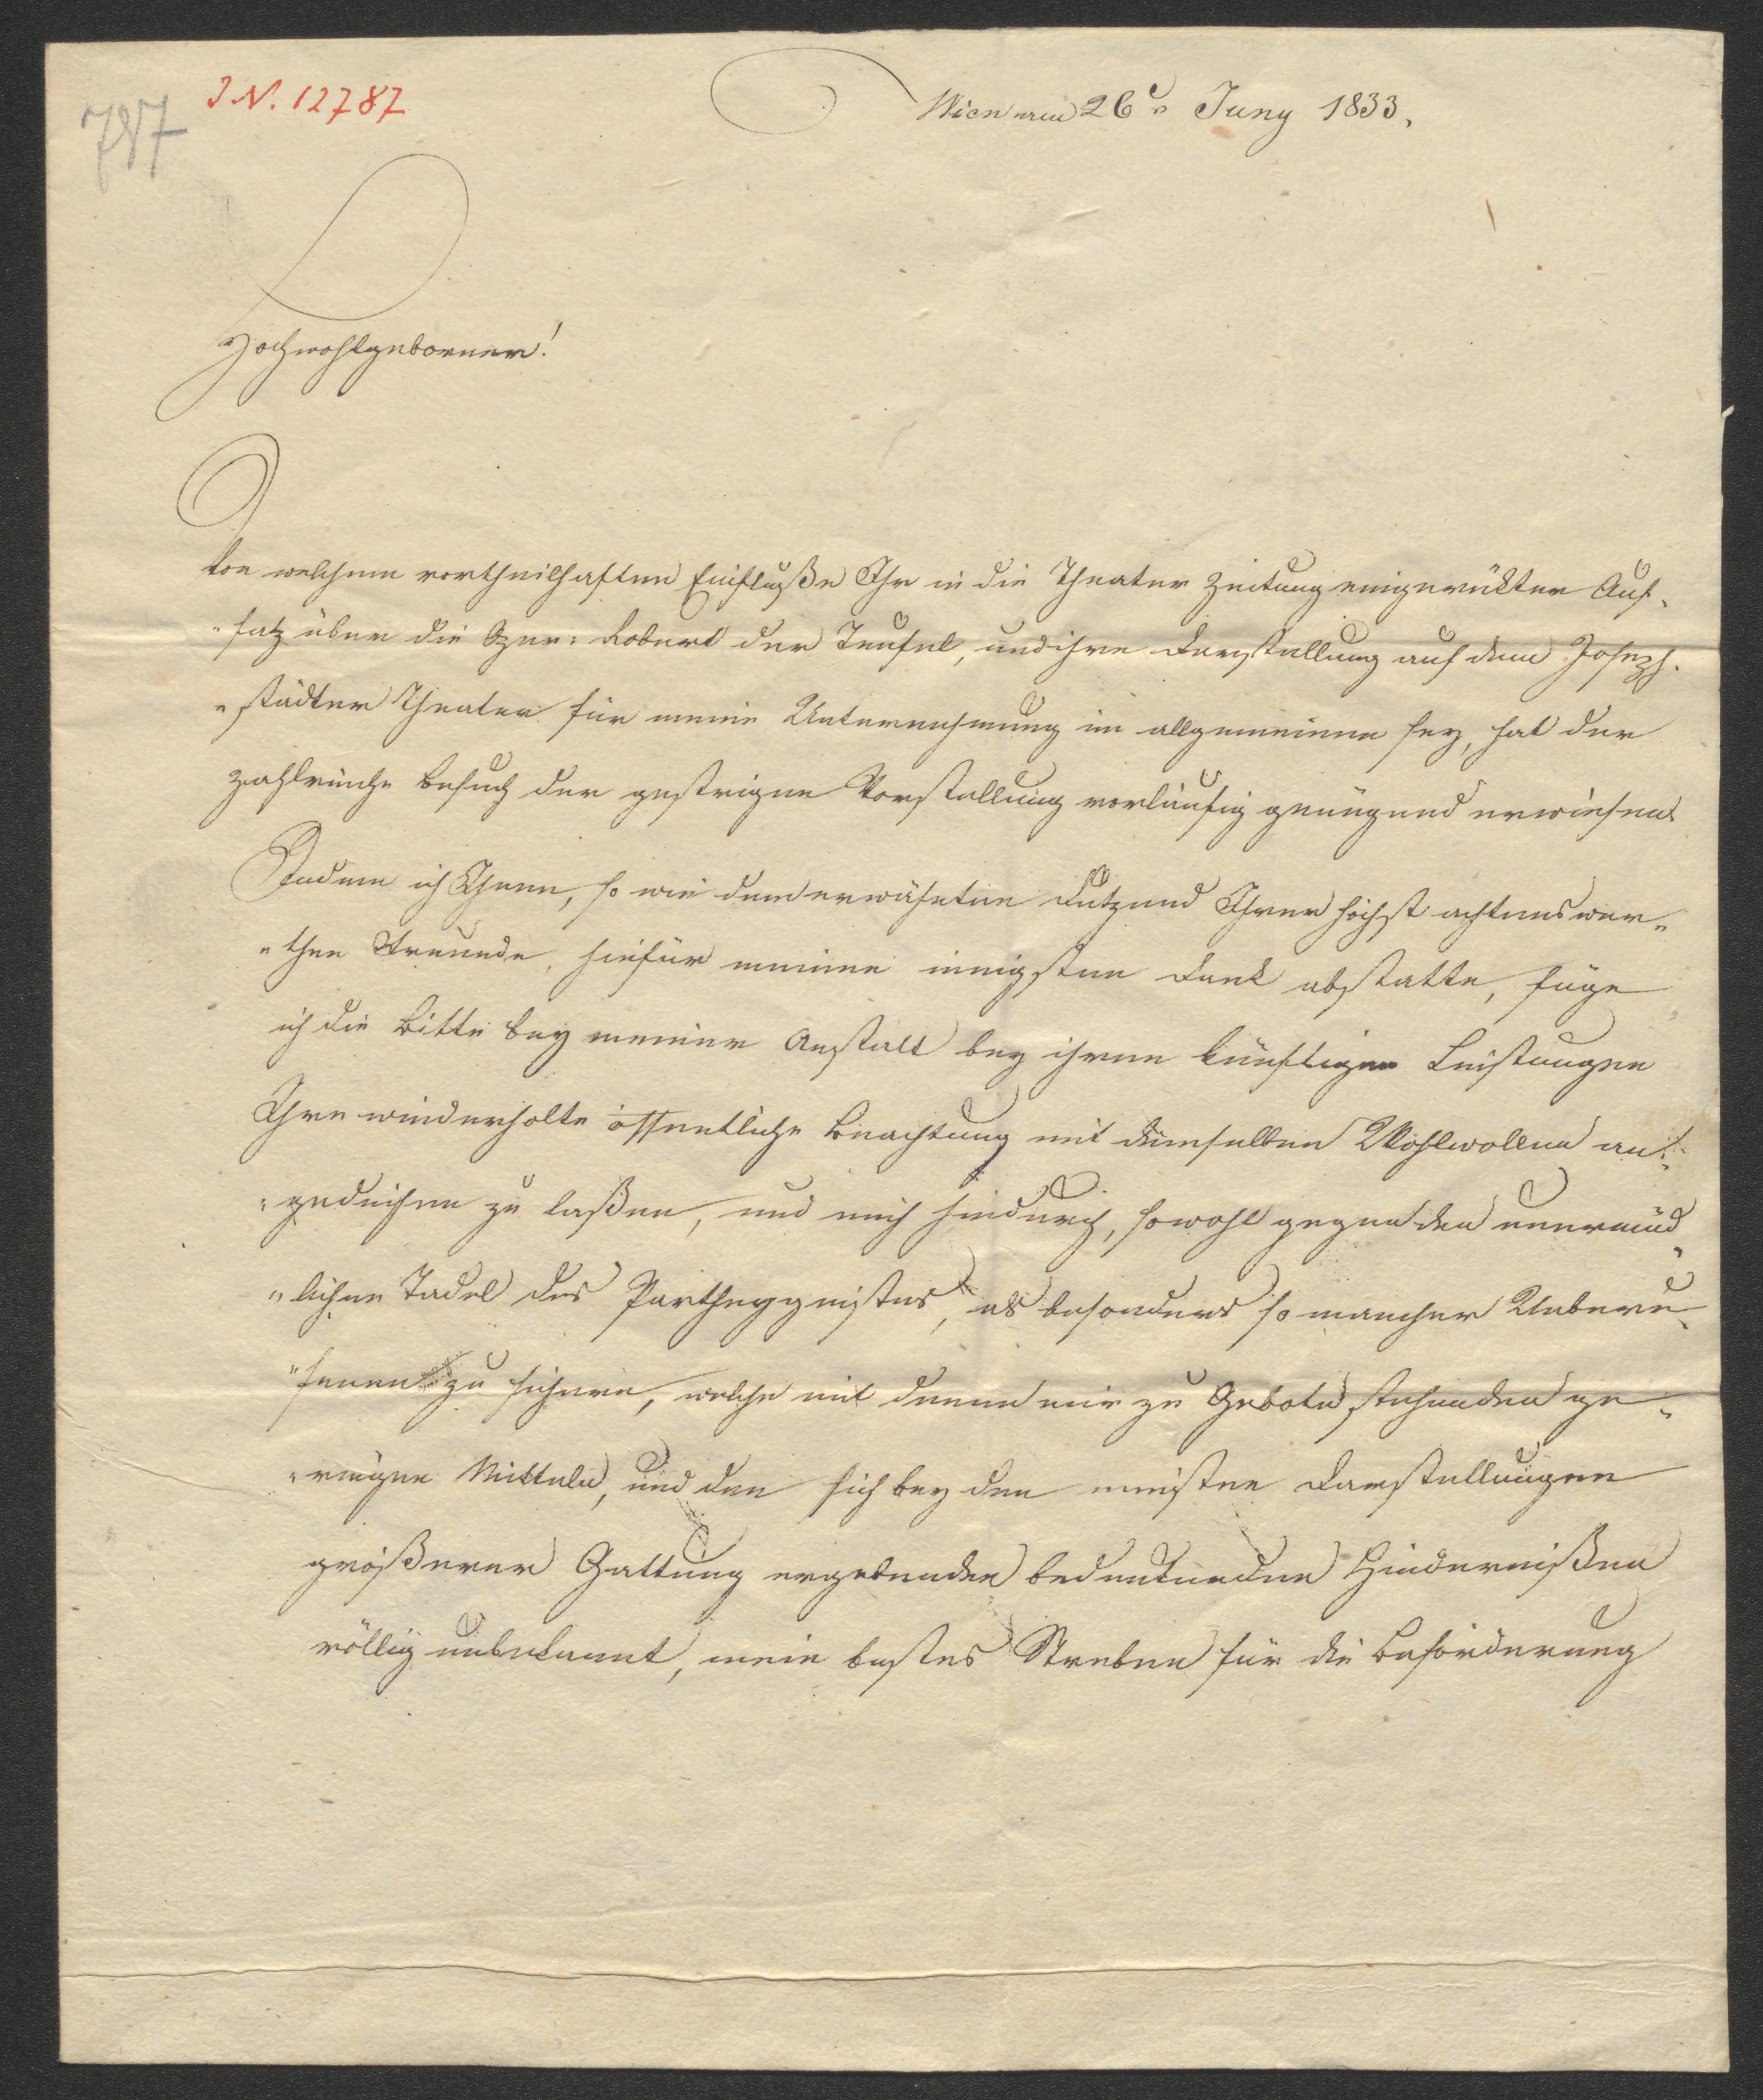 J.N. 12787
797
Wien am 26t Juny 1833.
Hochwohlgeborner!
Von welchem vortheilhaften Einflusße Ihr in die Theater Zeitung eingerükter Auf-
"satz über die Oper: Robert der Teufel, und ihre Darstellung auf dem Joseph-
"städter Theater für meine Unternehmung im allgemeinen sey, hat der
zahlreiche Besuch der gestrigen Vorstellung vorläufig genügend erwiesen.
Indem ich Ihnen, so wie dem erwähnten Dutzend Ihrer höchst achtenswer-
"then Freunde, hiefür meinen innigsten Dank abstatte, füge
ich die Bitte bey meiner Anstalt bey ihren künftigen Leistungen
Ihre wiederholte öffentliche Beachtung mit demselben Wohlwollen an-
"gedeihen zu laßen, und mich hiedurch, sowohl gegen den unermüd-
"lichen Tadel des Partheygeistes, als besonders so mancher Unberu-
"fenen zu sichern, welche mit denen mir zu Gebote stehenden ge-
"ringen Mitteln, und den sich bey den meisten Darstellungen
größerer Gattung ergebenden bedeutenden Hindernißen
völlig unbekannt, mein bestes Streben für die Beförderung